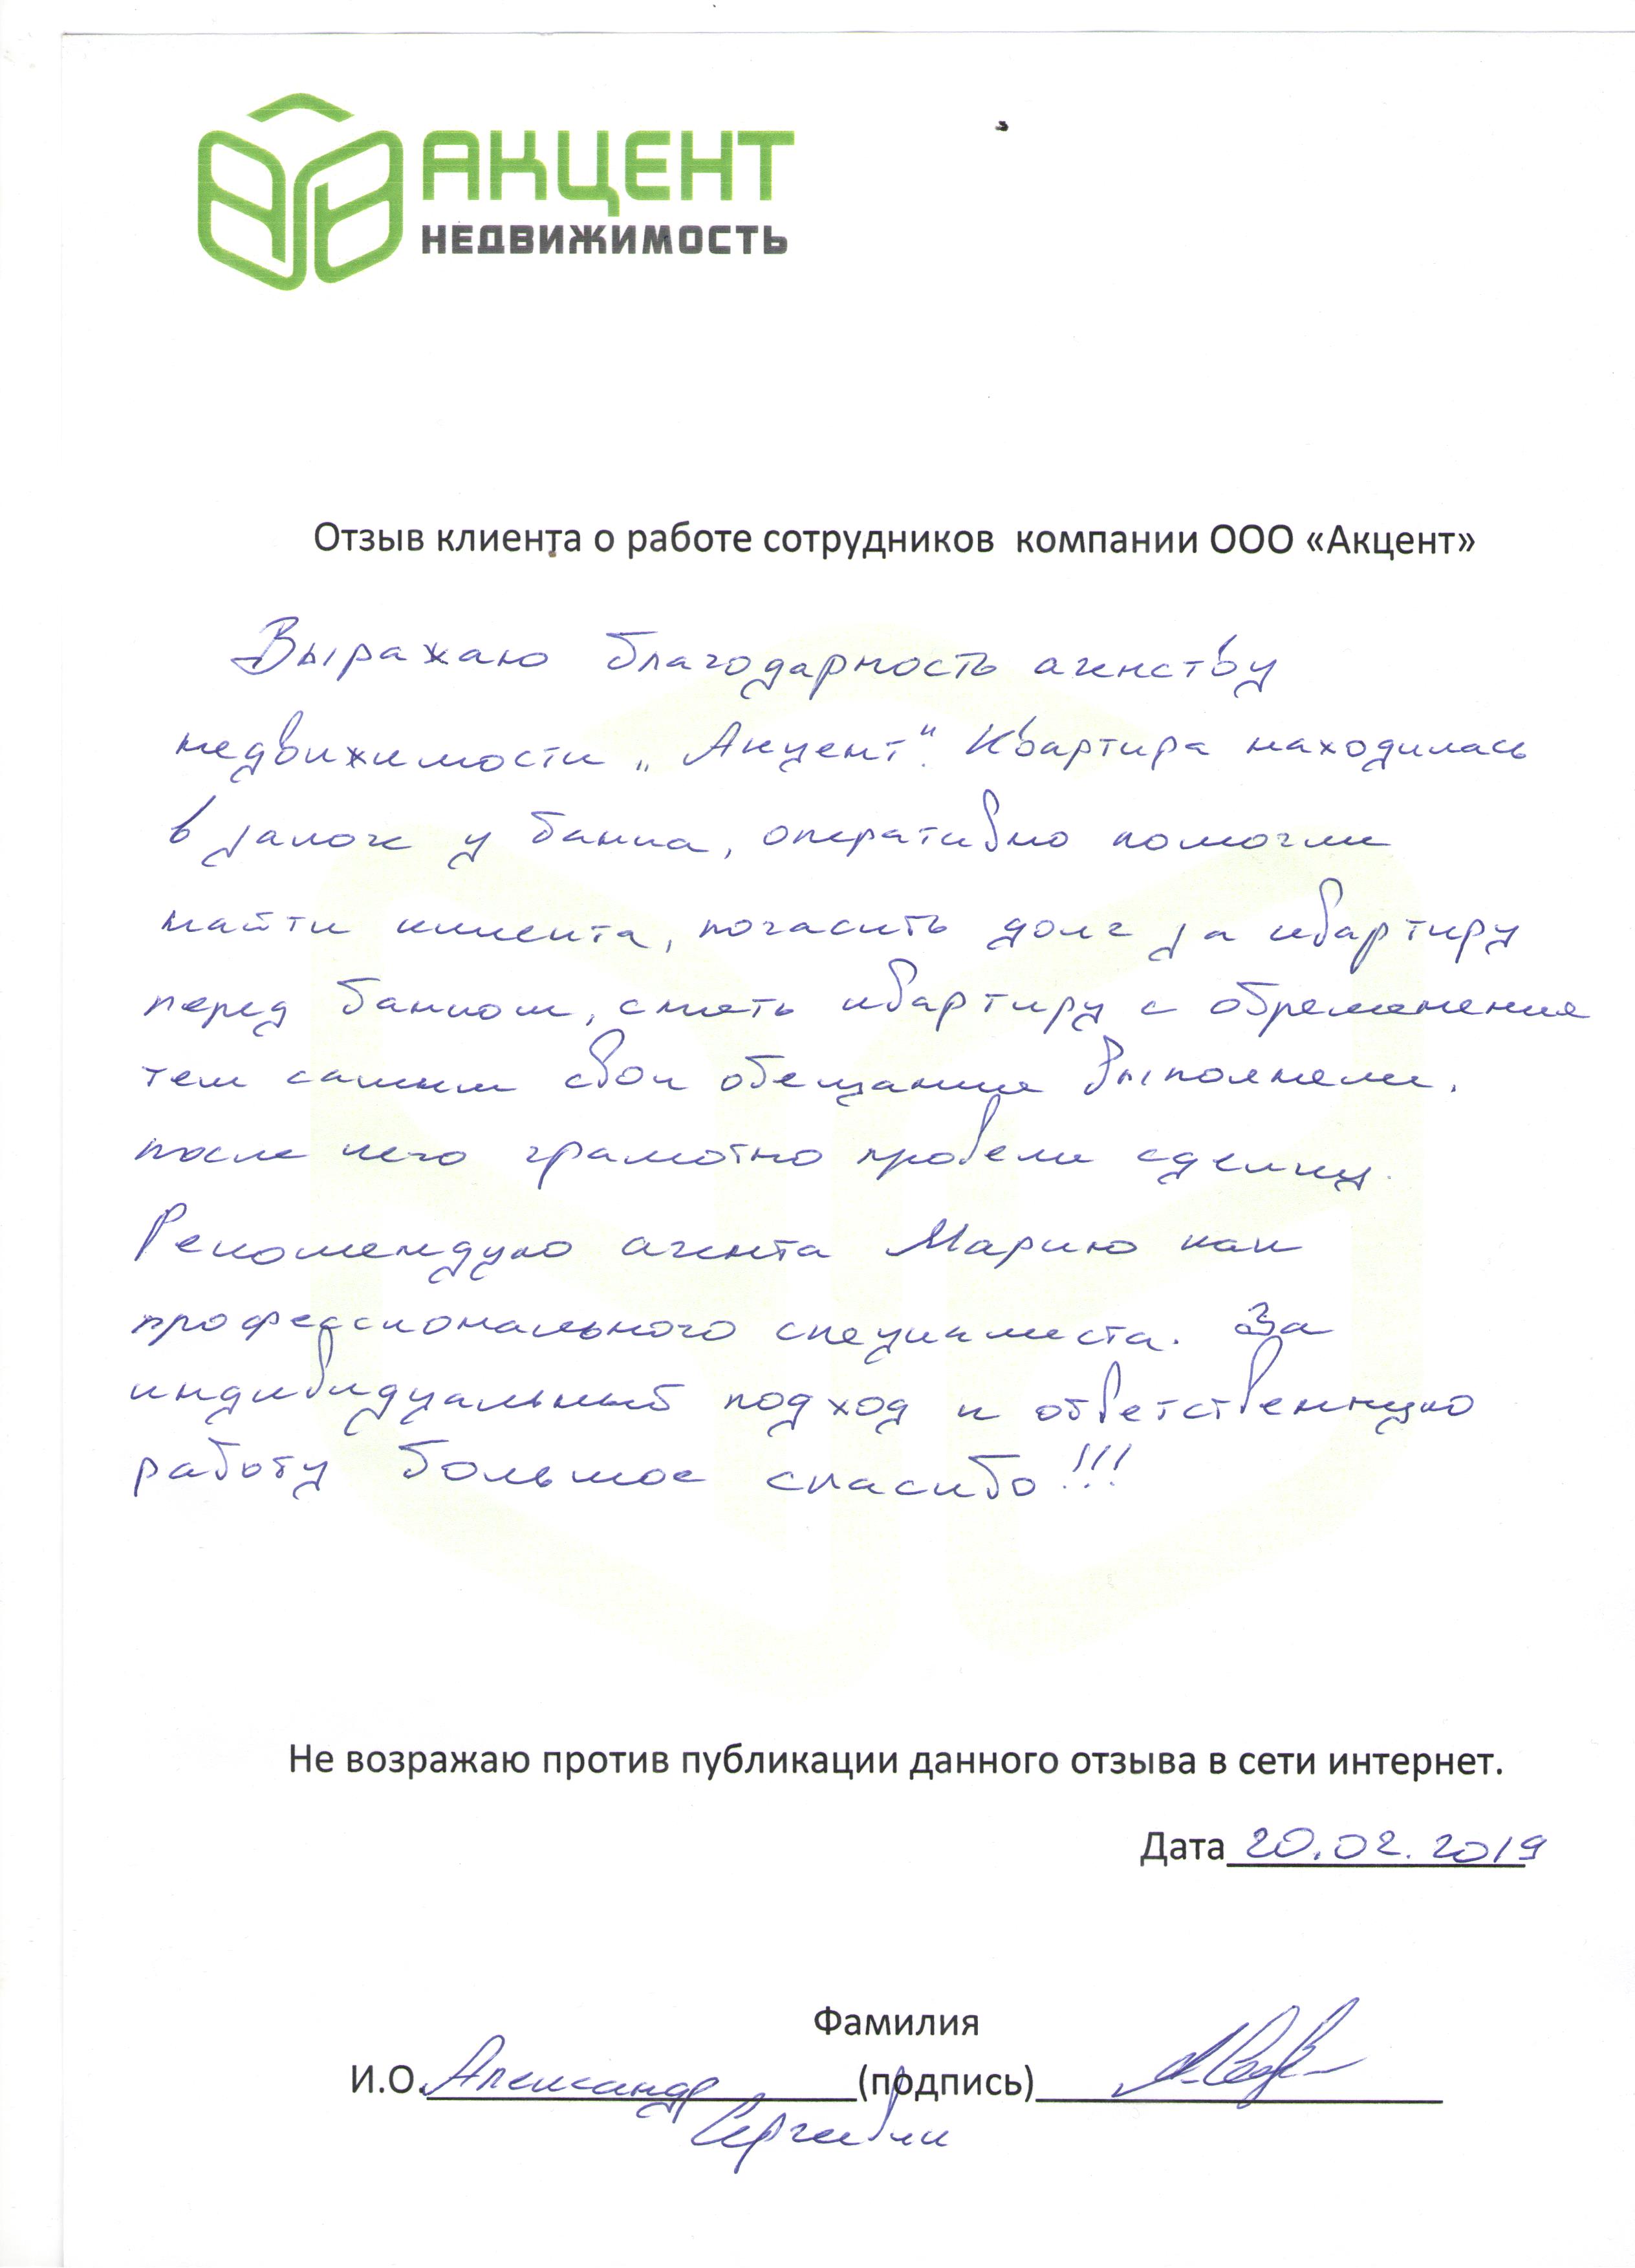 АКЦЕНТ
НЕДВИЖИМОСТЬ
Отзыв клиента о работе сотрудников компании ООО «Акцент»
Выражаю благодарность агенству
недвижимости „Акцент". Квартира находилась
в залоге у банка, оперативно помогли
найти клиента, погасить долг за квартиру
перед банком, снять квартиру с обременения
тем самым свои обещания выполнели.
после чего грамотно провели сделку.
Рекомендую агента Марию как
профессионального специалиста. За
индивидуальный подход и ответственную
работу большое спасибо!!!
Не возражаю против публикации данного отзыва в сети интернет.
Дата 20.02.2019
Фамилия
И.О. Александр (подпись)